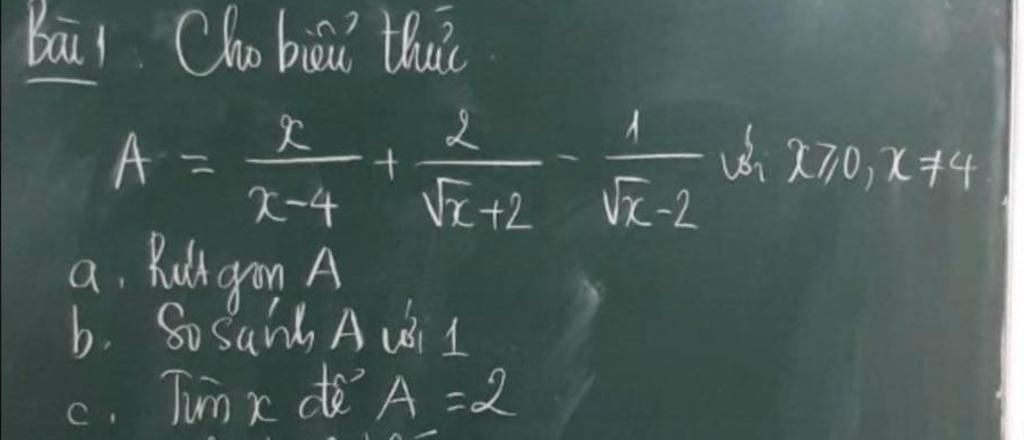 Bài 1. Cho biểu thức
A = x/(x-4) + 2/(√x+2) - 1/(√x-2) với x⩾0, x≠4
a. Rút gọn A
b. So sánh A với 1
c. Tìm x để A = 2